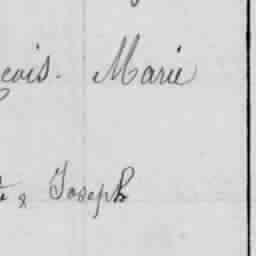 çois. Marie
& Joseph